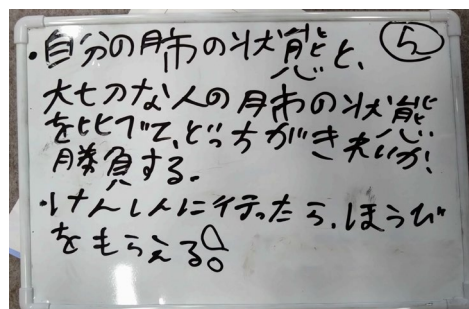 ・自分の肺の状態と、
5
大切な人の肺の状態
を比べて、どっちがきれいか!
勝負する。
・けんしんに行ったら、ほうび
をもらえる!